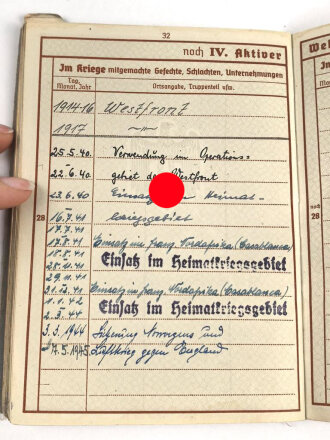 32
noch IV. Aktiver
Im Kriege mitgemachte Gefechte, Schlachten, Unternehmungen
Tag, Monat, Jahr
Ortsangabe, Truppenteil usw.
1914-16 Westfront
1917 — " —
25.5.40. Verwendung im Operations=
–
22.6.40. gebiet der Westfront
22.6.40 Einsatz im Heimat-
–
28 16.7.41 kriegsgebiet
17.7.41
17.8.41 Einsatz im franz. Nordafrika (Casablanca)
18.8.41
28.11.41 Einsatz im Heimatkriegsgebiet
29.11.41
31.12.41 Einsatz im franz. Nordafrika (Casablanca)
1.1.42
2.3.44 Einsatz im Heimatkriegsgebiet
3.3.1944 Sicherung Norwegens und
7.5.1945 Luftkrieg gegen England
28